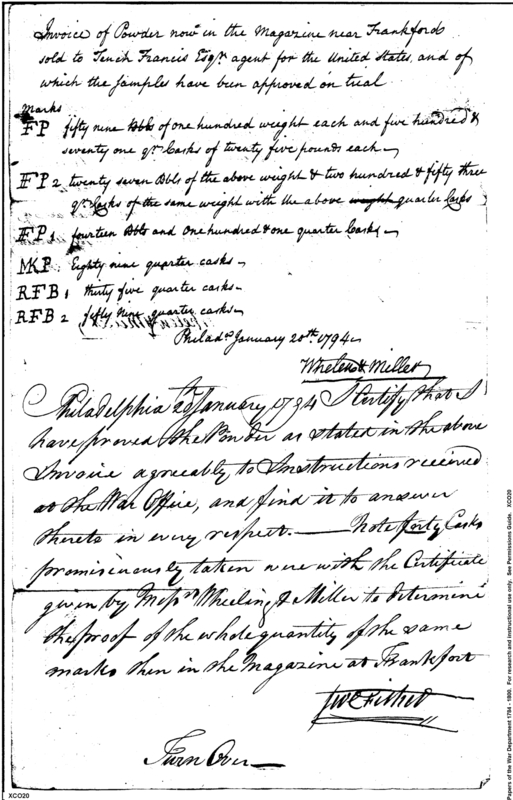 Invoice of Powder now in the Magazine near Frankford
sold to Tench Francis Esqr. agent for the United States, and of
which the Samples have been approved on trial
Marks
FP fifty nine Bbls of one hundred weight each and five hundred &
seventy one qr. Casks of twenty five pounds each
FP 2 twenty seven Bbls of the above weight & two hundred & fifty three
qr. Casks of the same weight with the above weight quarter Casks
FP 1 fourteen Bbls and One hundred & one quarter Casks
MKP: Eighty nine quarter casks
RFB 1 thirty five quarter casks
RFB 2 fifty Nine quarter casks
Philada. January 20th. 1794
Wheler & Miller
Philadelphia 20th January 1794 I Certify that I
have proved the Powder as stated in the above
Invoice agreeably to Instructions received
at the War Office, and find it to answer
thereto in every respect. Note forty Casks
promiscuously taken were with the Certificate
given by Messrs Wheeling & Miller to determine
the proof of the whole quantity of the same
marks then in the Magazine at Frankfort
Turn Over
XCO20
Papers of the War Department 1784 - 1800. For research and instructional use only. See Permissions Guide. XCO20